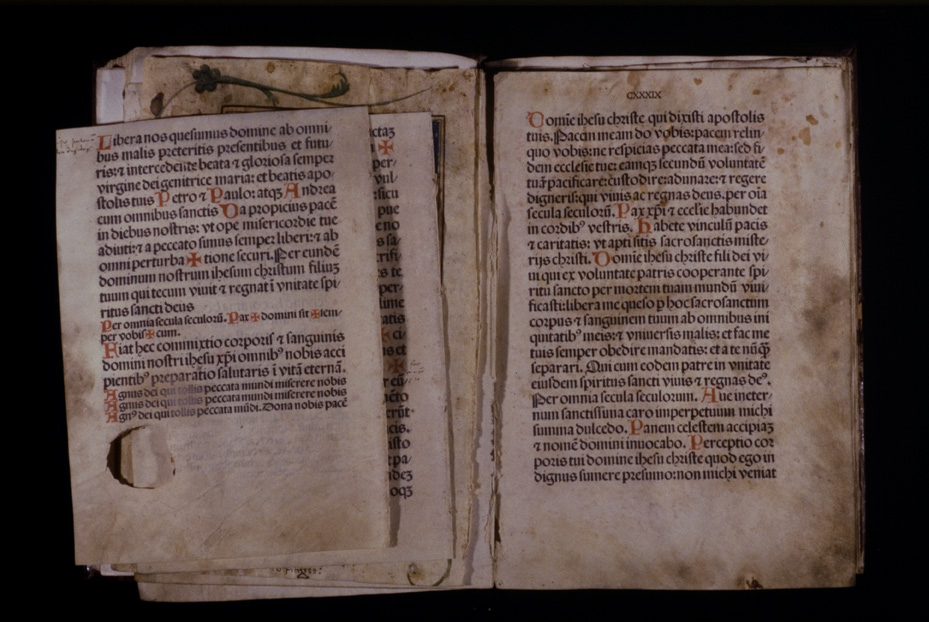 Libera nos quesumus domine ab omni-
bus malis preteritis presentibus et futu-
ris: ⁊ intercedente beata ⁊ gloriosa semper
virgine dei genitrice maria: et beatis apo
stolis tuis Petro ⁊ Paulo: atqꝫ Andrea
cum omnibus sanctis Da propicius pacē
in diebus nostris: vt ope misericordie tue
adiuti: ⁊ a peccato simus semper liberi: ⁊ ab
omni perturba ✠ tione securi. Per eundē
dominum nostrum ihesum christum filiuꝫ
tuum qui tecum viuit ⁊ regnat ī vnitate spi-
ritus sancti deus
Per omnia secula seculorū. Pax ✠ domini sit ✠ sem-
per vobis ✠ cum.
Fiat hec commixtio corporis ⁊ sanguinis
domini nostri ihesu xp̄i omnibꝰ nobis acci
pientibꝰ preparatio salutaris ī vitā eternā.
Agnus dei qui tollis peccata mundi miserere nobis
Agnus dei qui tollis peccata mundi miserere nobis
Agnꝰ dei qui tollis peccata mūdi. Dona nobis pacē
CXXXIX
Domine ihesu christe qui dixisti apostolis
tuis. Pacem meam do vobis: pacem relin-
quo vobis: ne respicias peccata mea: sed fi-
dem ecclesie tue: eamqꝫ secundū voluntatē
tuā pacificare: custodire: adunare: ⁊ regere
digneris: qui viuis ac regnas deus. per oīa
secula seculorū. Pax xp̄i ⁊ ecclīe habundet
in cordibꝰ vestris. Habete vinculū pacis
⁊ caritatis: vt apti sitis sacrosanctis miste-
rijs christi. Domine ihesu christe fili dei vi-
ui qui ex voluntate patris cooperante spi-
ritu sancto per mortem tuam mundū viui-
ficasti: libera me queso ꝑ hoc sacrosanctum
corpus ⁊ sanguinem tuum ab omnibus ini
quitatibꝰ meis: ⁊ vniuersis malis: et fac me
tuis semper obedire mandatis: et a te nūqꝫ
separari. Qui cum eodem patre in vnitate
eiusdem spiritus sancti viuis ⁊ regnas deꝰ.
Per omnia secula seculorum. Aue in eter-
num sanctissima caro imperpetuum michi
summa dulcedo. Panem celestem accipiaꝫ
⁊ nomē domini inuocabo. Perceptio cor
poris tui domine ihesu christe quod ego in
dignus sumere presumo: non michi veniat